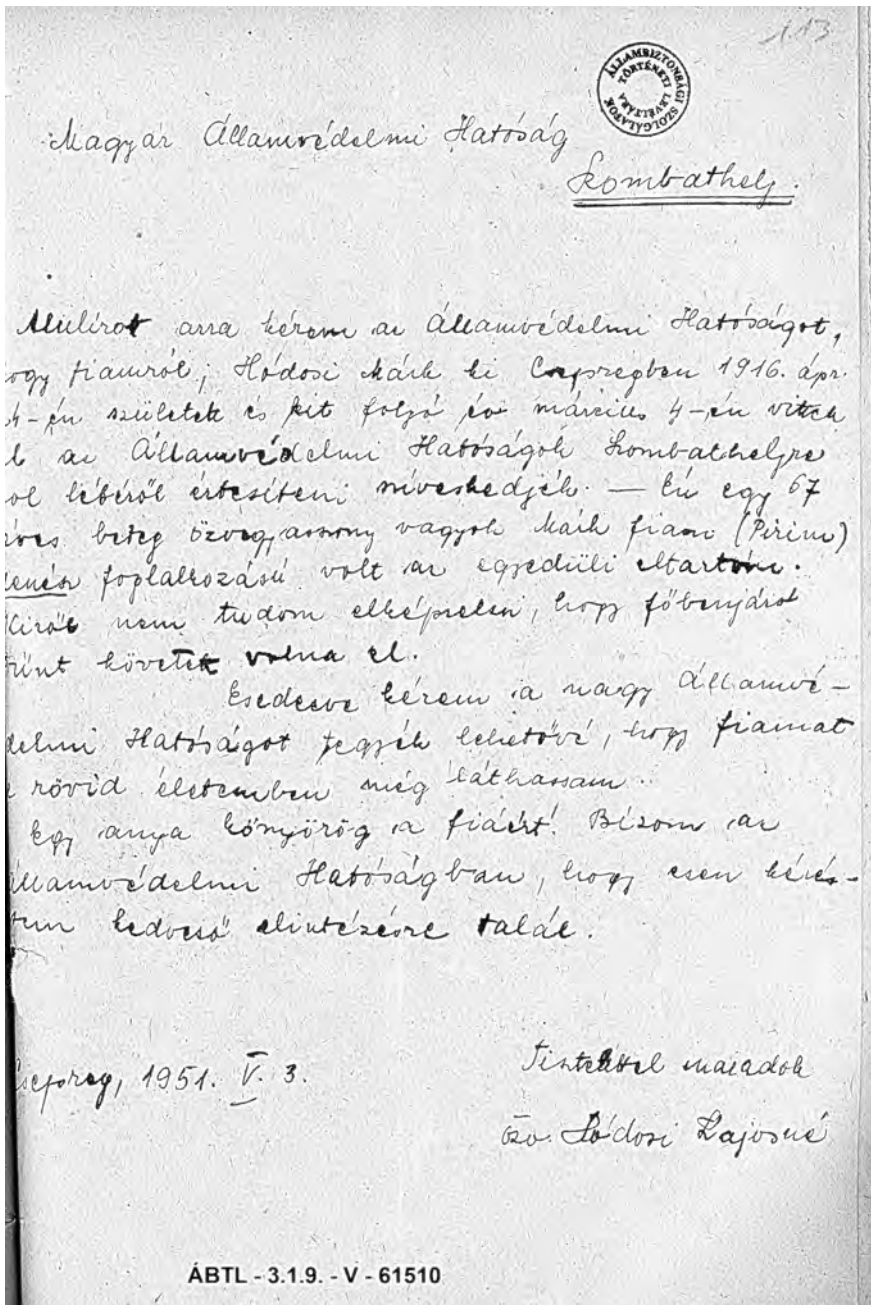 113
ÁLLAMBIZTONSÁGI SZOLGÁLATOK
TÖRTÉNETI LEVÉLTÁRA
Magyar Államvédelmi Hatóság
Szombathely.
Alulírott arra kérem az Államvédelmi Hatóságot,
ogy fiamról, Hódosi Márk ki Csepregben 1916. ápr.
4-én születek és kit folyó év március 4-én vittek
l az Államvédelmi Hatóságok Szombathelyre
ol létéről értesíteni sziveskedjék. — Én egy 67
éves beteg özvegyasszony vagyok Márk fiam (Pirim)
zenész foglalkozású volt az egyedüli eltartóm.
Kiről nem tudom elképzelni, hogy főbenjáró
bűnt követett volna el.
Esedezve kérem a nagy Államvé-
delmi Hatóságot tegyék lehetővé, hogy fiamat
e rövid életemben még láthassam.
Egy anya könyörög a fiáért! Bízom az
Államvédelmi Hatóságban, hogy ezen kérés-
em kedvező elintézésre talál.
Csepreg, 1951. V. 3.
Tisztelettel maradok
özv. Hódosi Lajosné
ÁBTL - 3.1.9. - V - 61510